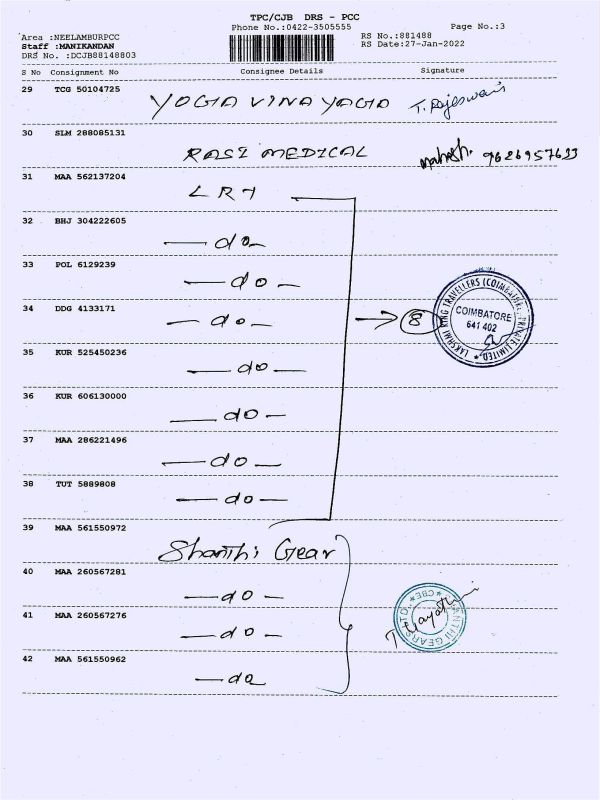 TPC/CJB DRS - PCC
Phone No.:0422-3505555
Page No.:3
Area :NEELAMBURPCC
RS No.:881488
Staff :MANIKANDAN
RS Date:27-Jan-2022
DRS No. :DCJB88148803
S No Consignment No Consignee Details Signature
29 TCG 50104725 YOGA VINAYAGA T. Rajeswari
30 SLM 288085131 RASI MEDICAL Mahesh. 9626957633
31 MAA 562137204 LRT
32 BHJ 304222605 — do —
33 POL 6129239 — do —
34 DDG 4133171 — do — → 8
LAKSHMI RING TRAVELLERS (COIMBATORE) PRIVATE LIMITED, *
COIMBATORE
641 402
35 KUR 525450236 — do —
36 KUR 606130000 — do —
37 MAA 286221496 — do —
38 TUT 5889808 — do —
39 MAA 561550972 Shanthi Gear
40 MAA 260567281 — do —
41 MAA 260567276 — do —
SHANTHI GEARS LTD., * CBE *
42 MAA 561550962 — do